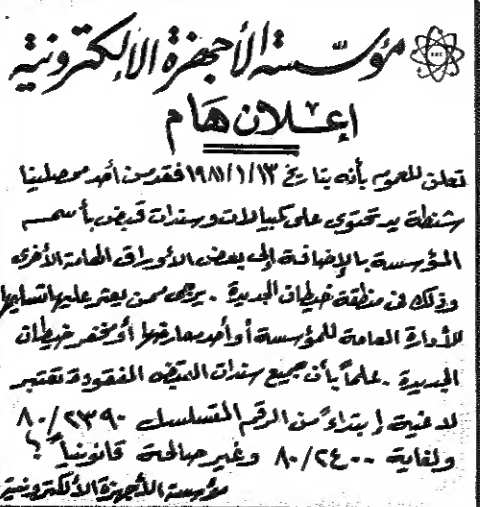 مؤسسة الأجهزة الإلكترونية
إعلان هام
تعلن للعموم بأنه بتاريخ ١٩٨١/١/١٣ فقد من أحد محصلينا
شنطة يد تحتوي على كمبيالات وسندات قبض بأسم
المؤسسة بالإضافة إلى بعض الأوراق الهامة الأخرى
وذلك في منطقة خيطان الجديدة . يرجى ممن يعثر عليها تسليمها
للأدارة العامة للمؤسسة أو أحد معارضها أو مخفر خيطان
الجديدة . علماً بأن جميع سندات القبض المفقودة تعتبر
لاغية إبتداءً من الرقم المتسلسل ٨٠/٢٣٩٠
ولغاية ٨٠/٢٤٠٠ وغير صالحة قانونياً
مؤسسة الأجهزة الألكترونية